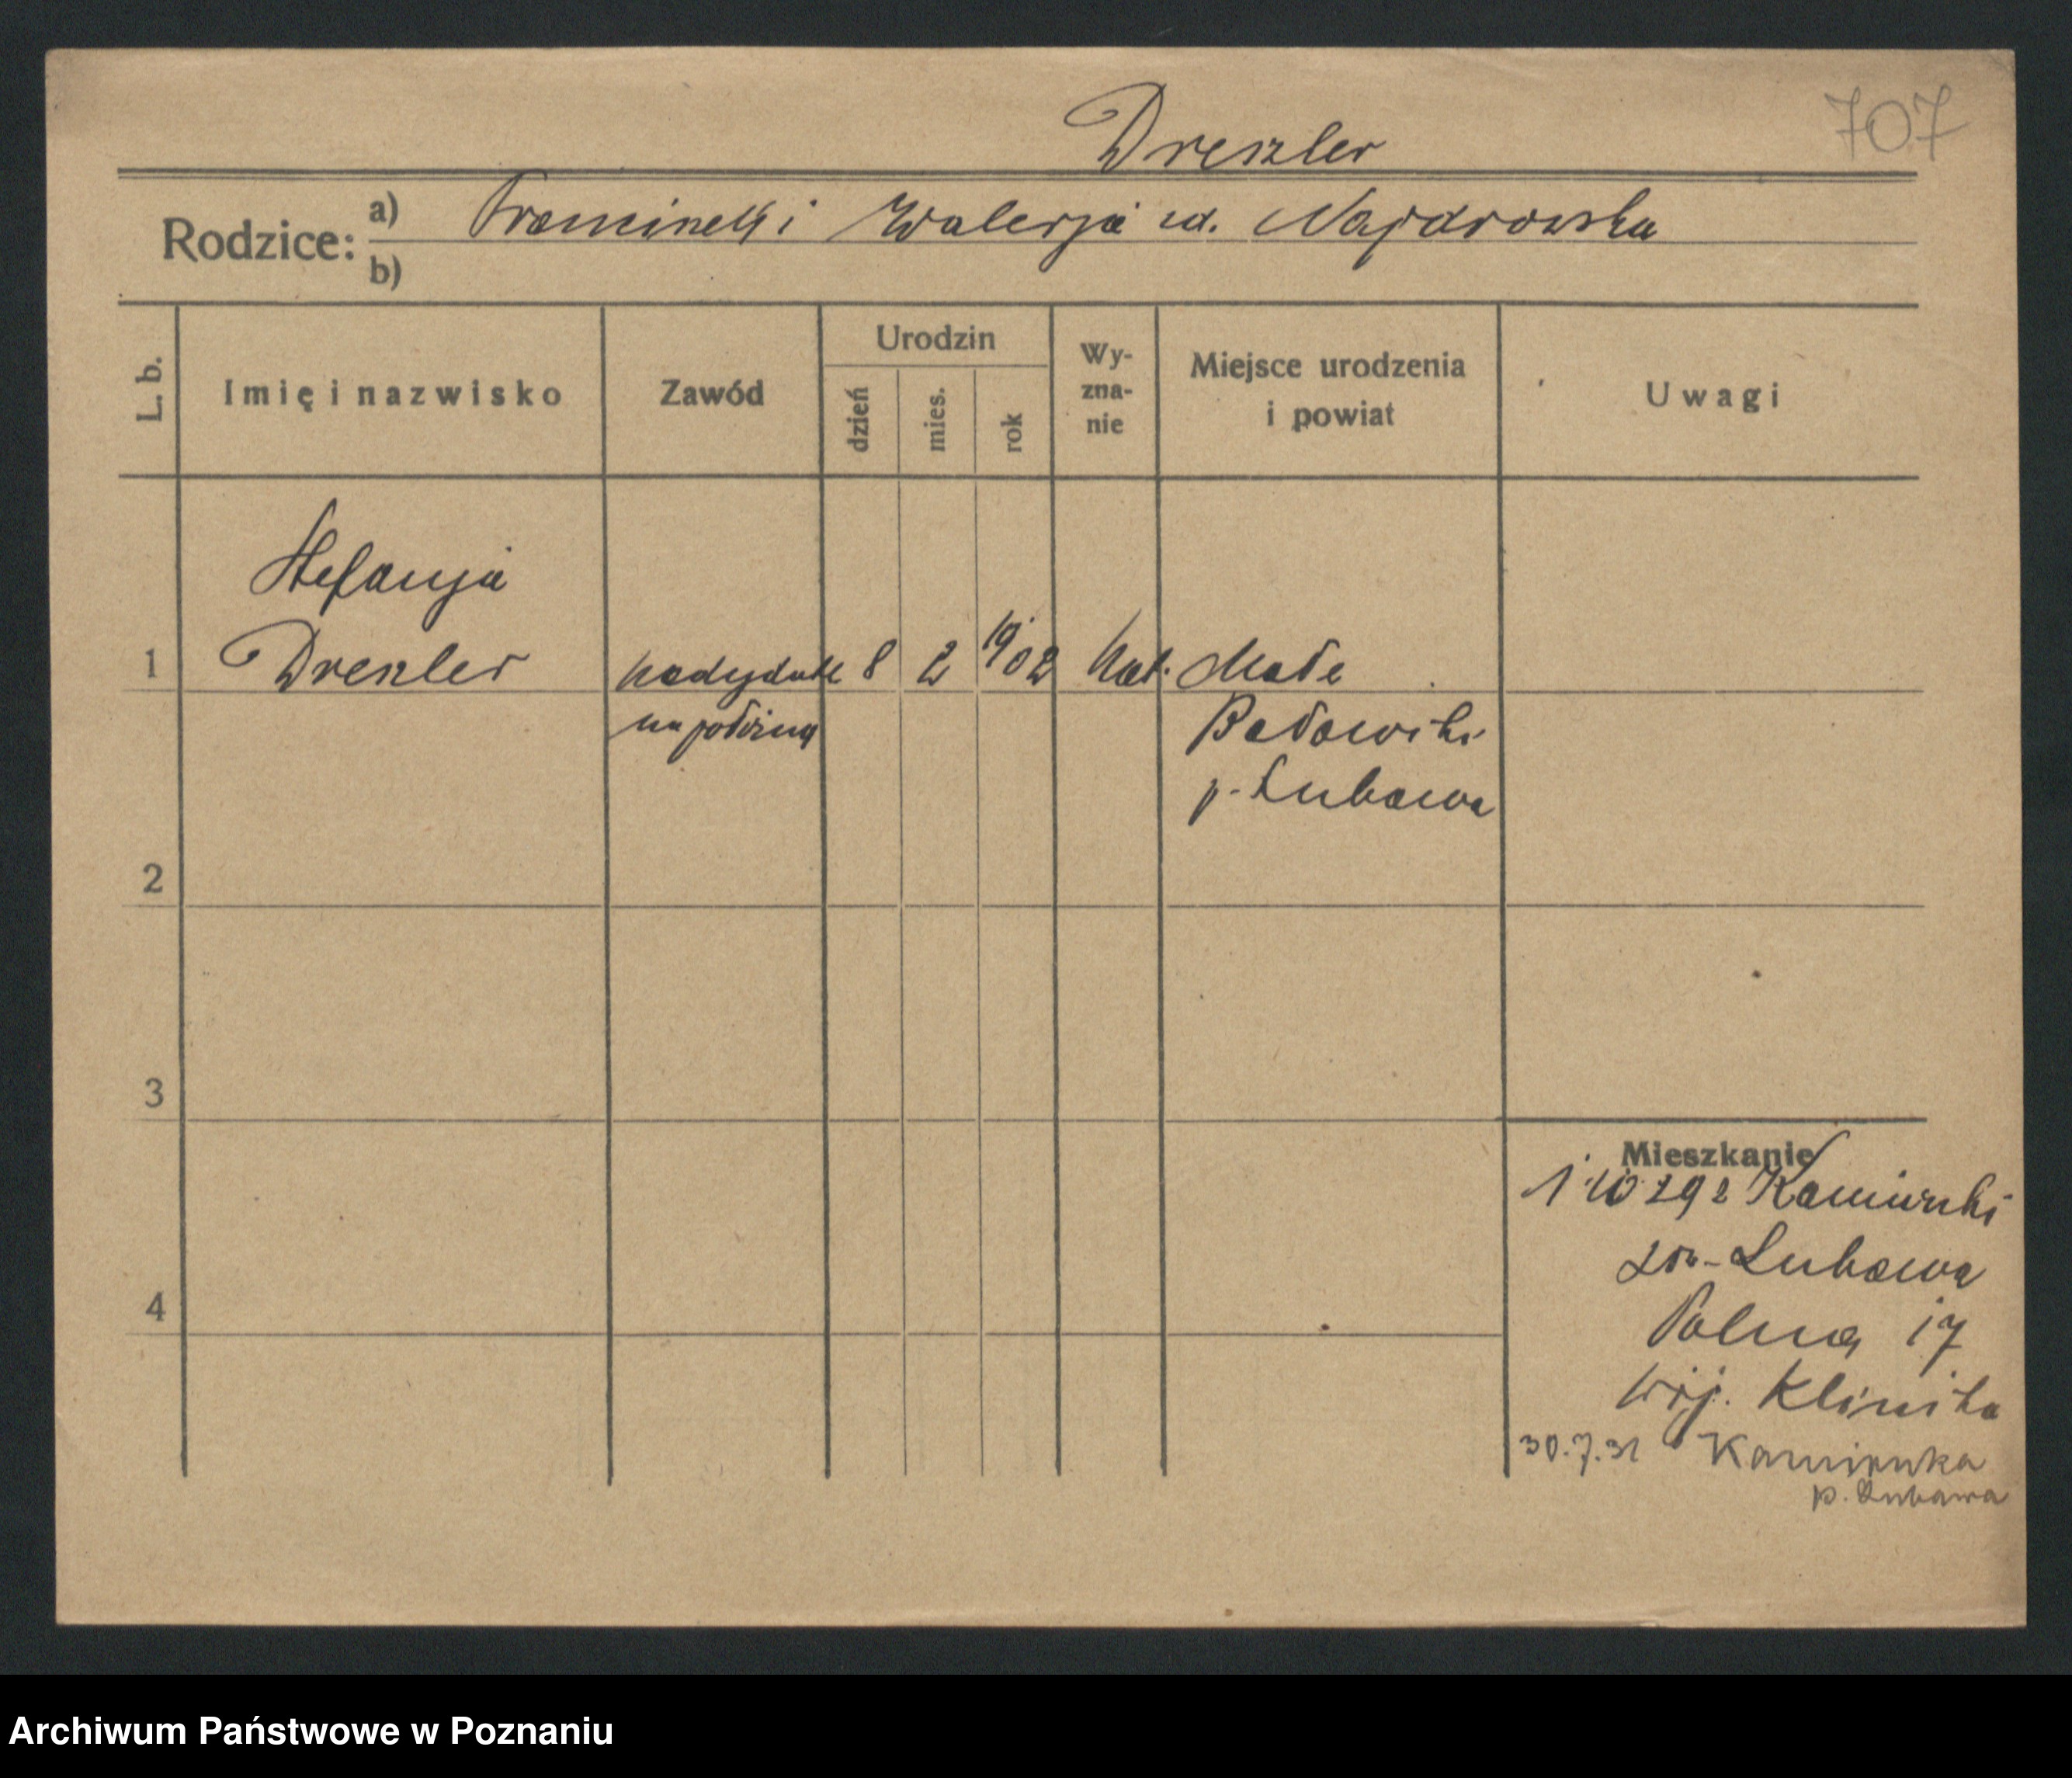 707
Drexler
Rodzice: a) Franciszek i Walerja ur. Najdrowska
b)
L. b.
Imię i nazwisko
Zawód
Urodzin
dzień
mies.
rok
Wy-
zna-
nie
Miejsce urodzenia
i powiat
Uwagi
Stefanja
1 Drexler kadydatk 8 2 1902 kat. Małe
na położną Bałowiki
p. Lubawa
2
3
4
Mieszkanie
1.10 29 z Kamiński
Lubawa
Polna 17
wyj. Klinika
30.7.31 Kamionka
p. Lubawa
Archiwum Państwowe w Poznaniu